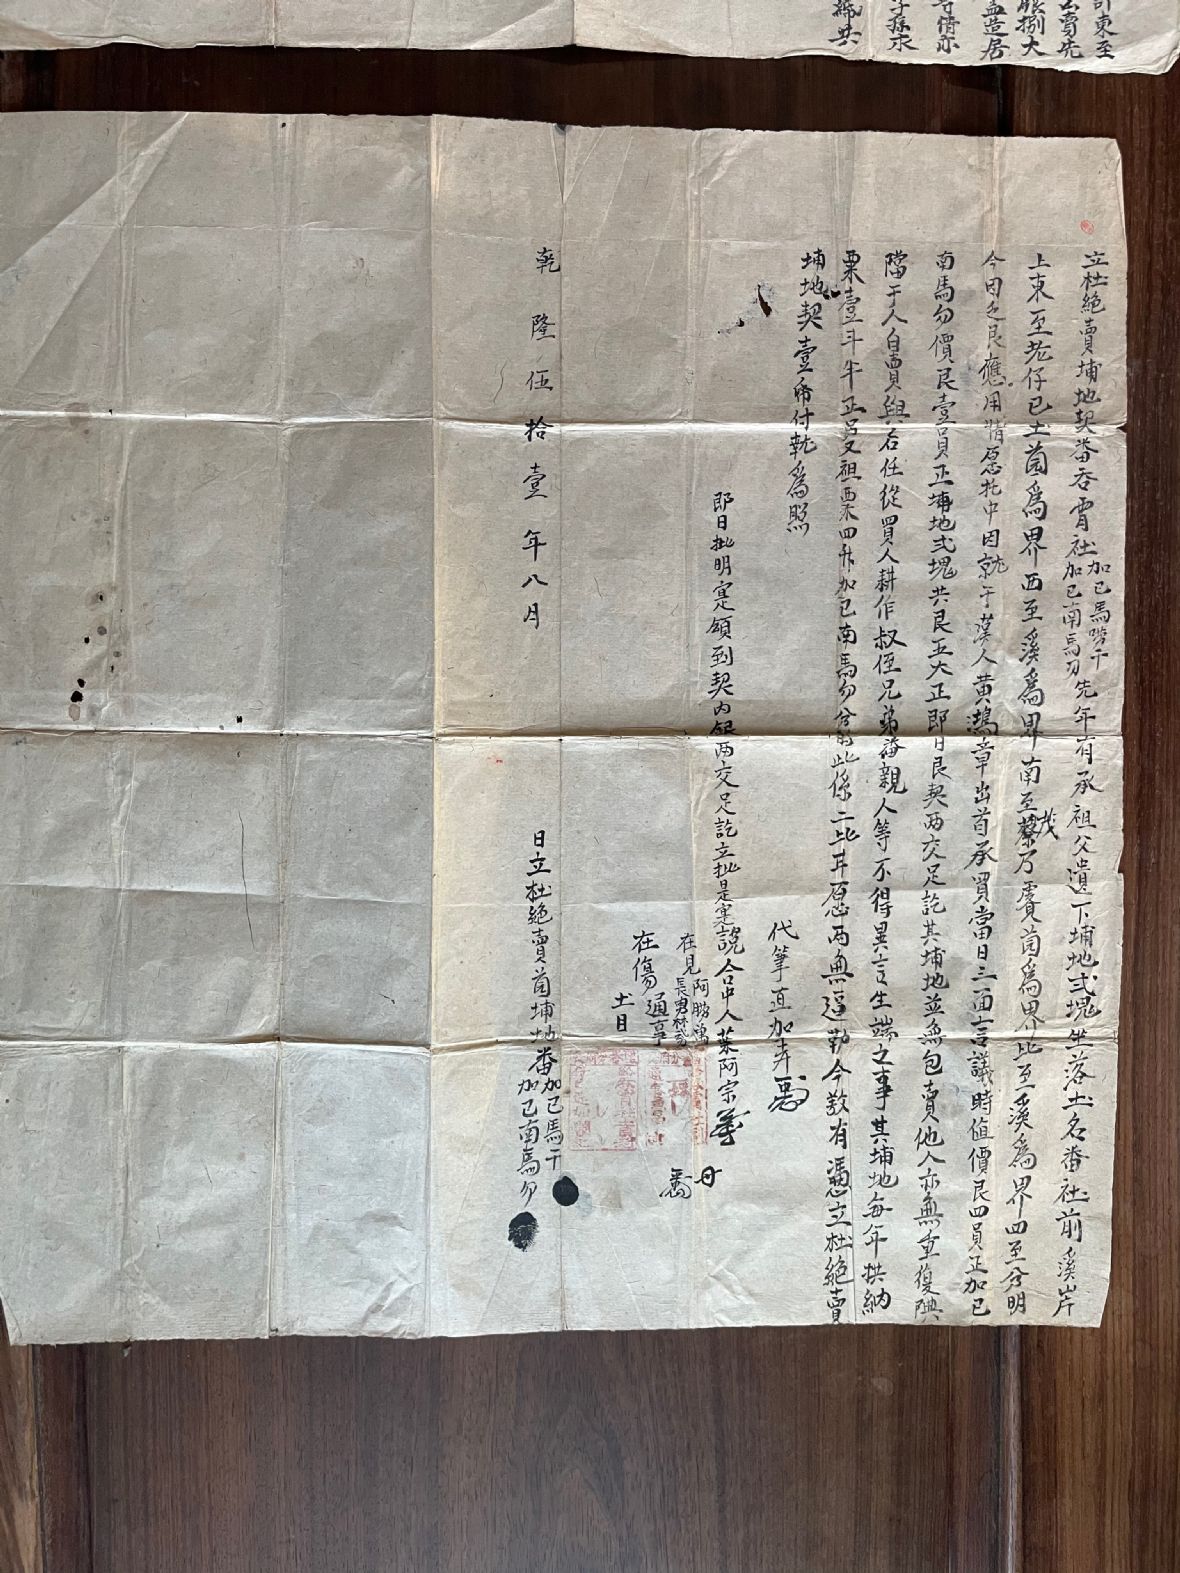 立杜絕賣埔地契番吞霄社加己馬勝干加己南馬勿先年有承祖父遺下埔地弍塊坐落土名番社前溪岸
上東至老仔己土茵為界西至溪為界南至蔡茂乃賡茵為界北至溪為界四至分明
今因乏艮應用情愿托中因就于漢人黄鴻章出首承買當日三面言議時值價艮四員正加己
南馬勿價艮壹員正埔地弍塊共艮五大正即日艮契两交足訖其埔地並無包賣他人亦無重復典
當于人自賣與后任從買人耕作叔侄兄弟番親人等不得異言生端之事其埔地每年拱納
粟壹斗半正 祖粟四升加己南馬勿 此係二比甘愿两無逼勒今欲有憑立杜絕賣
埔地契壹帋付執為照
代筆直加弄
即日批明寔領到契内銀两交足訖立批是寔 說合中人葉阿宗
在見
在傷通亨
土目
乾隆伍拾壹年八月 日立杜絕賣茵埔地番加己馬干加己南馬勿
許東至
出賣先
艮捌大
蓋造居
等情亦
子孫永